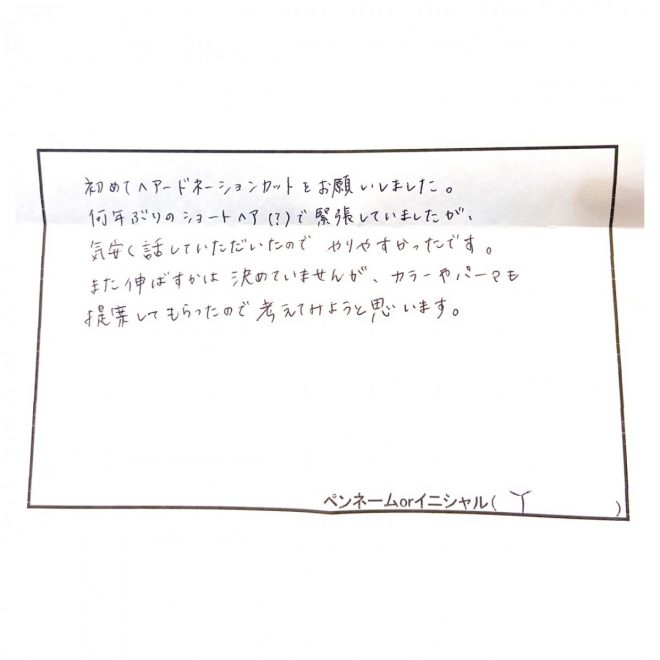 初めてヘアードネーションカットをお願いしました。
何年ぶりのショートヘア(?)で緊張していましたが、
気安く話していただいたので やりやすかったです。
また伸ばすかは 決めていませんが、カラーやパーマも
提案してもらったので 考えてみようと思います。
ペンネームorイニシャル( Y )